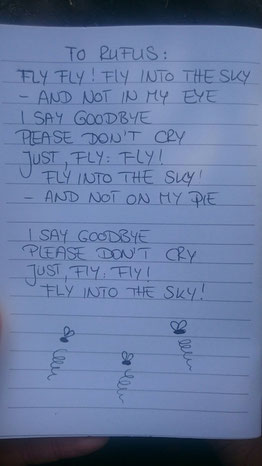 TO RUFUS:
FLY FLY! FLY INTO THE SKY
- AND NOT IN MY EYE
I SAY GOODBYE
PLEASE DON'T CRY
JUST, FLY: FLY!
FLY INTO THE SKY!
- AND NOT ON MY PIE
I SAY GOODBYE
PLEASE DON'T CRY
JUST, FLY: FLY!
FLY INTO THE SKY!